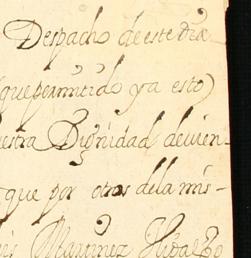 Despacho de este dia
(que permitido ya esto)
uestra Dignidad devien-
que por otros dela mis-
Martinez Hidalgo